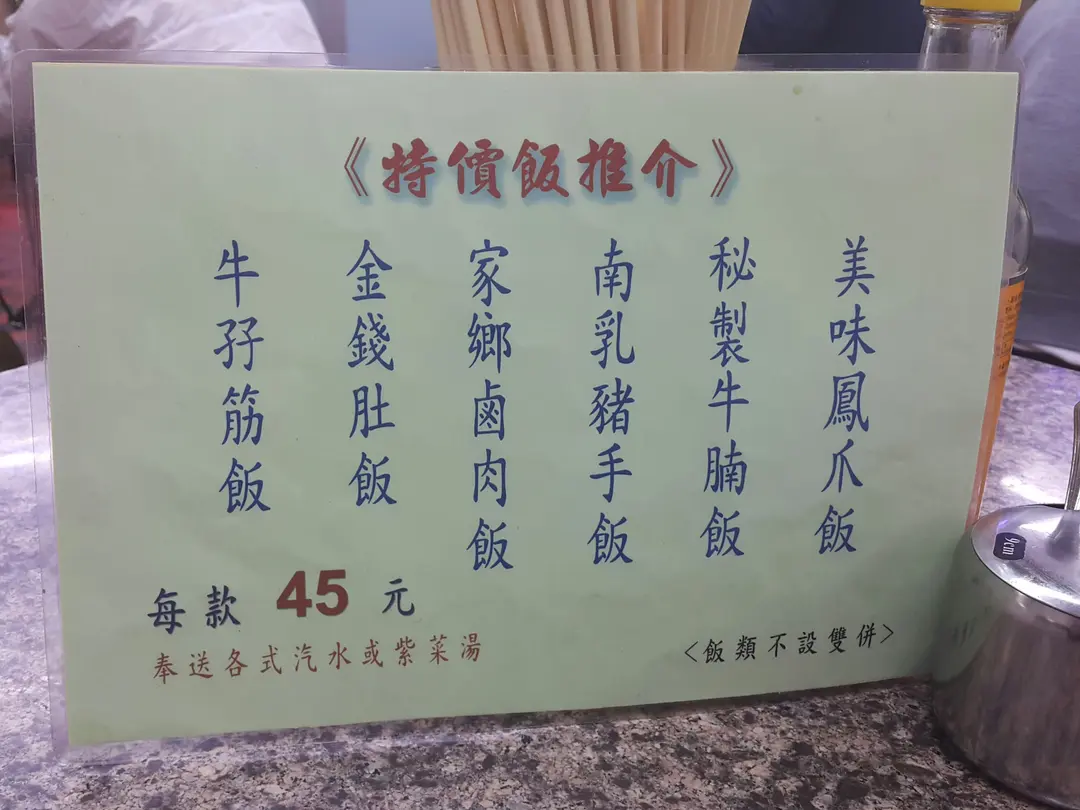 《特價飯推介》
美味鳳爪飯
秘製牛腩飯
南乳豬手飯
家鄉鹵肉飯
金錢肚飯
牛孖筋飯
每款 45 元
奉送各式汽水或紫菜湯
<飯類不設雙併>
9cm